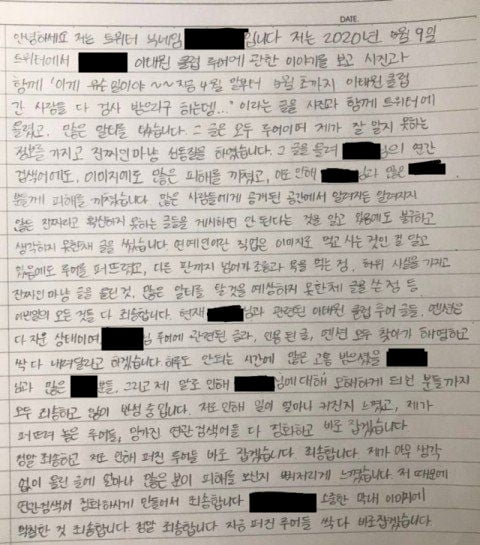 DATE.
안녕하세요 저는 트위터 닉네임 입니다 저는 2020년 5월 9일
트위터에서 이태원 클럽 루머에 관한 이야기를 보고 사진과
함께 '이게 무슨 일이야 ~~ 지금 4월 말부터 5월 초까지 이태원 클럽
간 사람들 다 검사 받으라구 하는데...' 이라는 글을 사진과 함께 트위터에
올렸고, 많은 알티를 탔습니다. 그 글은 모두 루머이며 제가 잘 알지 못하는
정보를 가지고 진짜인 마냥 선동질을 하였습니다. 그 글을 올려 님의 연관
검색어에도, 이미지에도 많은 피해를 끼쳤고, 이로 인해 님과 많은
분들께 피해를 끼쳤습니다. 많은 사람들에게 공개된 공간에서 알려진듯 알려지지
않은 진짜라고 확신하지 못하는 글들을 게시하면 안 된다는 것을 알고 있음에도 불구하고
생각하지 못한채 글을 썼습니다 연예인이란 직업은 이미지로 먹고 사는 것인 걸 알고
있음에도 루머를 퍼뜨렸고, 다른 판까지 넘어가 조롱과 욕을 먹는 점, 허위 사실을 가지고
진짜인 마냥 글을 올린 것, 많은 알티를 탈 것을 예상하지 못한채 글을 쓴 점 등
이번일의 모든 것들 다 죄송합니다. 현재 님과 관련된 이태원 클럽 루머 글들, 멘션은
다 지운 상태이며 님 루머에 관련된 글과, 인용 된 글, 멘션 모두 찾아가 해명하고
싹 다 내려달라고 하겠습니다 하루도 안되는 시간에 많은 고통 받으셨을
님과 많은 분들, 그리고 제 말로 인해 님에 대해 오해하게 되신 분들까지
모두 죄송하고 많이 반성 중입니다. 저로 인해 일이 얼마나 커진지 느꼈고, 제가
퍼뜨려 놓은 루머들, 망가진 연관 검색어들 다 정화하고 바로 잡겠습니다
정말 죄송하고 저로 인해 퍼진 루머들 바로 잡겠습니다. 죄송합니다. 제가 아무 생각
없이 올린 글에 얼마나 많은 분이 피해를 보신지 뼈저리게 느꼈습니다. 저 때문에
연관검색어 정화하시게 만들어서 죄송합니다 소중한 막내 이미지에
먹칠한 것 죄송합니다. 정말 죄송합니다 지금 퍼진 루머들 싹 다 바로잡겠습니다.